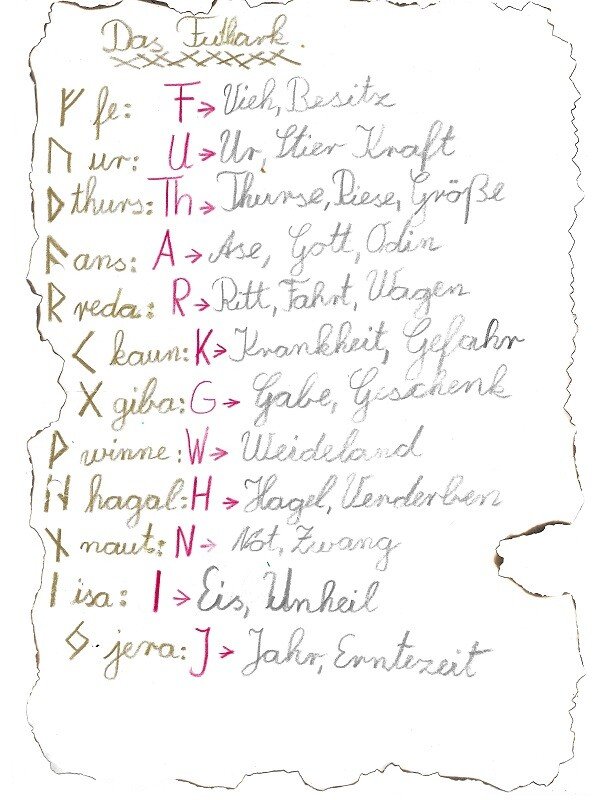 Das Futhark.
ᚠ fe: F → Vieh, Besitz
ᚢ ur: U → Ur, Stier Kraft
ᚦ thurs: Th → Thurse, Riese, Größe
ᚨ ans: A → Ase, Gott, Odin
ᚱ reda: R → Ritt, Fahrt, Wagen
ᚲ kaun: K → Krankheit, Gefahr
ᚷ giba: G → Gabe, Geschenk
ᚹ winne: W → Weideland
ᚺ hagal: H → Hagel, Verderben
ᚾ naut: N → Not, Zwang
ᛁ isa: I → Eis, Unheil
ᛃ jera: J → Jahr, Erntezeit